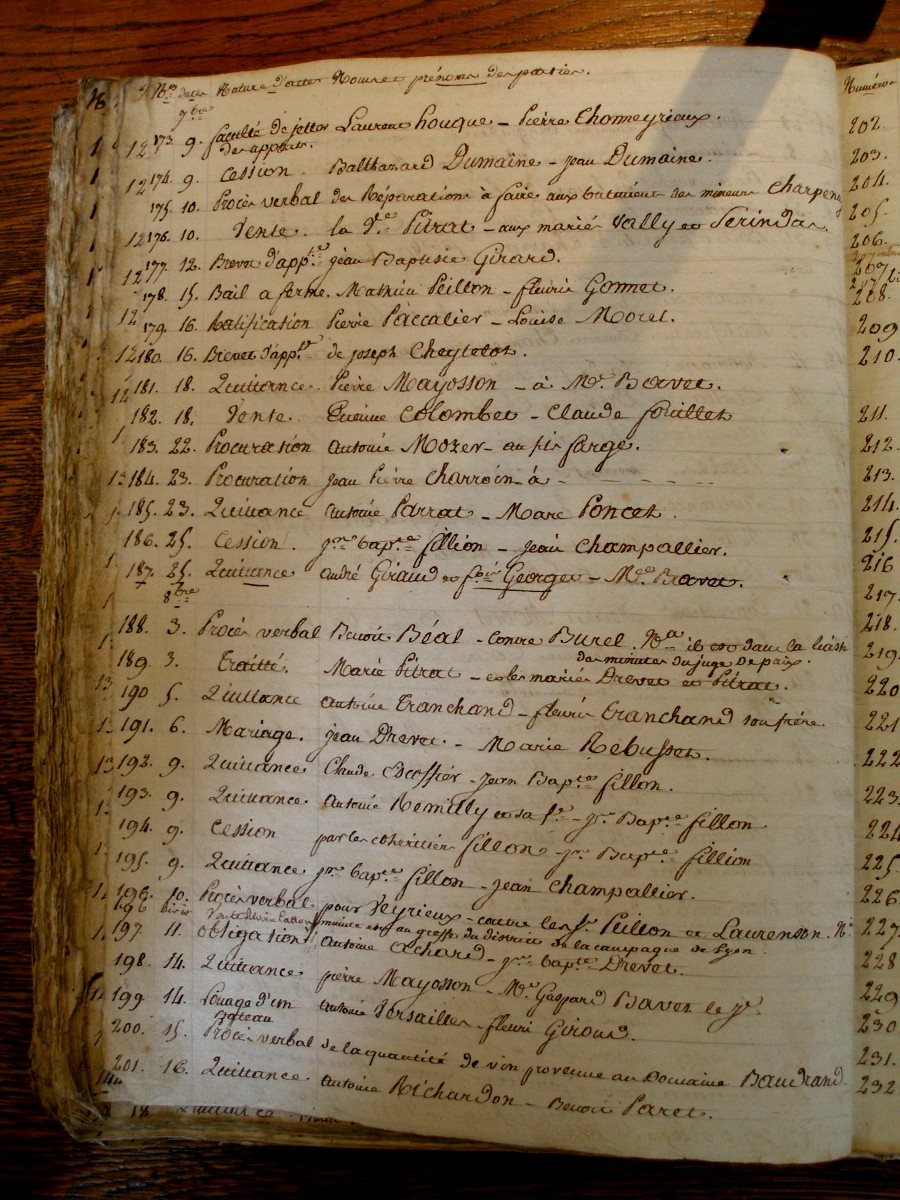 Nos dattes Nature d'actes Noms et prénoms des parties.
7bre
173. 9. faculté de jetter Laurent Fouque - Pierre Chomeyrieux.
des appuis.
174. 9. Cession. Balthazard Dumaine - jean Dumaine.
175. 10. Procès verbal des Réparations à faire aux batiments des mineurs Charpeney
176. 10. Vente. la Ve Pitrat - aux mariés Vally et Serindas.
177. 12. Brevet d'app.ge jean Baptiste Girard.
178. 15. Bail a ferme. Mathieu Peillon - fleurie Gonnet.
179. 16. Ratification Pierre Paccalier - Louise Morel.
180. 16. Brevet d'app.ge de joseph Cheytelot.
181. 18. Quittance. Pierre Mayosson - à Mr. Bavet.
182. 18. Vente. Etienne Colombet - Claude Souillet
183. 22. Procuration Antoine Mozer - au sir farge.
184. 23. Procuration jean Pierre Charroin - à - - - - -
185. 23. Quittance Antoine Parrat - Marc Poncet.
186. 25. Cession. jn bapte fillion - jean Champallier.
187. 25. Quittance André Giraud et fois Georges - Me Bavet.
8bre
188. 3. Procès verbal Benoit Béal - contre Burel. Na il est dans la liasse
des minutes du juge de paix.
189. 3. Traitté. Marie Pitrat - et les mariés Drevet et Pitrat.
190 5. Quittance Antoine Tranchand - fleurie Tranchand son frère.
191. 6. Mariage. jean Drevet - Marie Rebusset.
192. 9. Quittance Claude Escoffier - jean Bapte fillon.
193. 9. Quittance. Antoine Remilly et sa fe - jn Bapte fillon
194. 9. Cession par les cohéritiers fillon - jn Bapte fillion
195. 9. Quittance jn bapte fillon - jean Champallier.
196. 10. Procès verbal pour Veyrieux - contre les Srs Peillon et Laurenson. Na
196 bis minute est au greffe du district de la campagne de Lyon
197. 11. Obligation Antoine Achard - jn bapte Drevet.
198. 14. Quittance pierre Mayosson - Me Gaspard Bavet le je
199. 14. Louage d'un Antoine Versailles - fleuri Giroud.
Bateau
200. 15. Procès verbal de la quantité de vin provenue au Domaine Baudrand.
201. 16. Quittance. Antoine Richardon - Benoit Paret.
18 Quittance
Numéros
202.
203.
204.
205.
206.
207
207 bis
208.
209
210.
211.
212.
213.
214.
215.
216
217.
218.
219.
220
221
222
223.
224
225.
226.
227.
228
229
230
231.
232